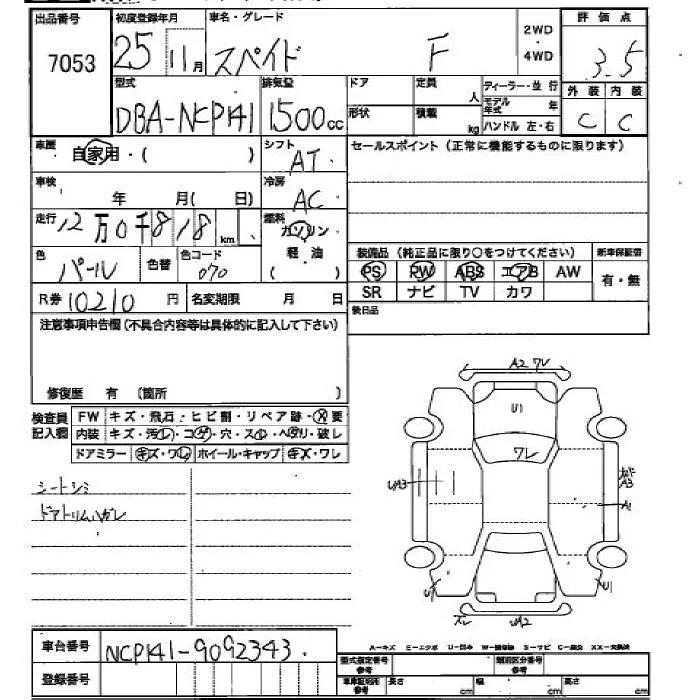 出品番号 初度登録年月 車名・グレード 2WD ・ 4WD 評価点
7053 25 11月 スペイド F 3.5
型式 排気量 ドア 定員 人 ディーラー・並行 外装 内装
DBA-NCP141 1500cc 形状 積載 kg モデル年式 年 C C
ハンドル 左・右
車歴 自家用・( ) シフト AT セールスポイント(正常に機能するものに限ります)
車検 年 月( 日) 冷房 AC
走行 12万0千818km 燃料 ガソリン
色 パール 色替 色コード 070 軽・油 ( ) 装備品(純正品に限り○をつけてください) 新車保証書
PS PW ABS エアB AW 有・無
R券 10210円 名変期限 月 日 SR ナビ TV カワ
注意事項申告欄(不具合内容等は具体的に記入して下さい) 後日品
修復歴 有 (箇所 )
検査員記入欄 FW キズ・飛石・ヒビ割・リペア跡・X要
内装 キズ・汚レ・コゲ・穴・スレ・ヘタリ・破レ
ドアミラー キズ・ワレ ホイール・キャップ キズ・ワレ
シートシミ
ドアトリムハガレ
A2 ワレ
U1
ワレ
UA3
A3
A1
U1 U1
ズレ UA2
車台番号 NCP141-9092343
登録番号
A-キズ E-エクボ U-凹み W-補修跡 S-サビ C-腐食 XX-交換済
型式指定番号 参考 類別区分番号 参考
車庫証明用 参考 長さ cm 幅 cm 高さ cm